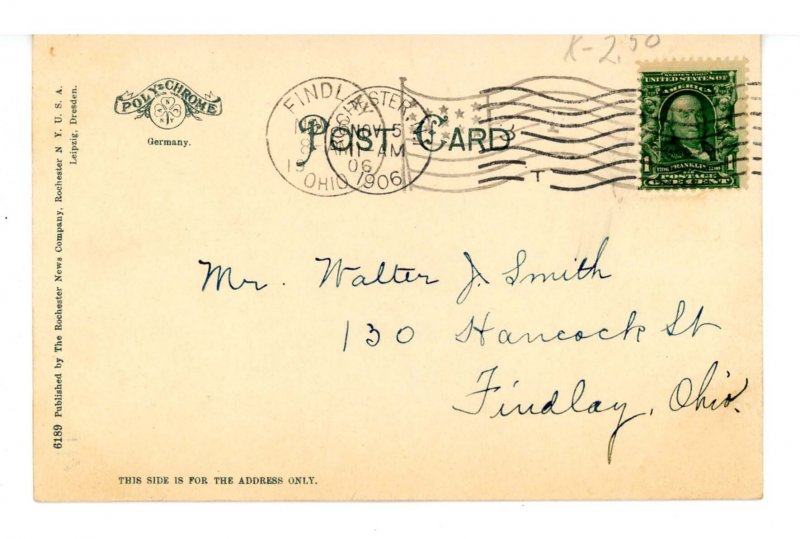 K-2.50
POLY-CHROME
Germany.
POST CARD
FINDLAY
OHIO
NOV 5
AM
1906
SERIES 1902
UNITED STATES OF
AMERICA
FRANKLIN
POSTAGE
ONE CENT
Mr. Walter J. Smith
130 Hancock St
Findlay, Ohio.
6189 Published by The Rochester News Company, Rochester N. Y. U. S. A.
Leipzig, Dresden.
THIS SIDE IS FOR THE ADDRESS ONLY.